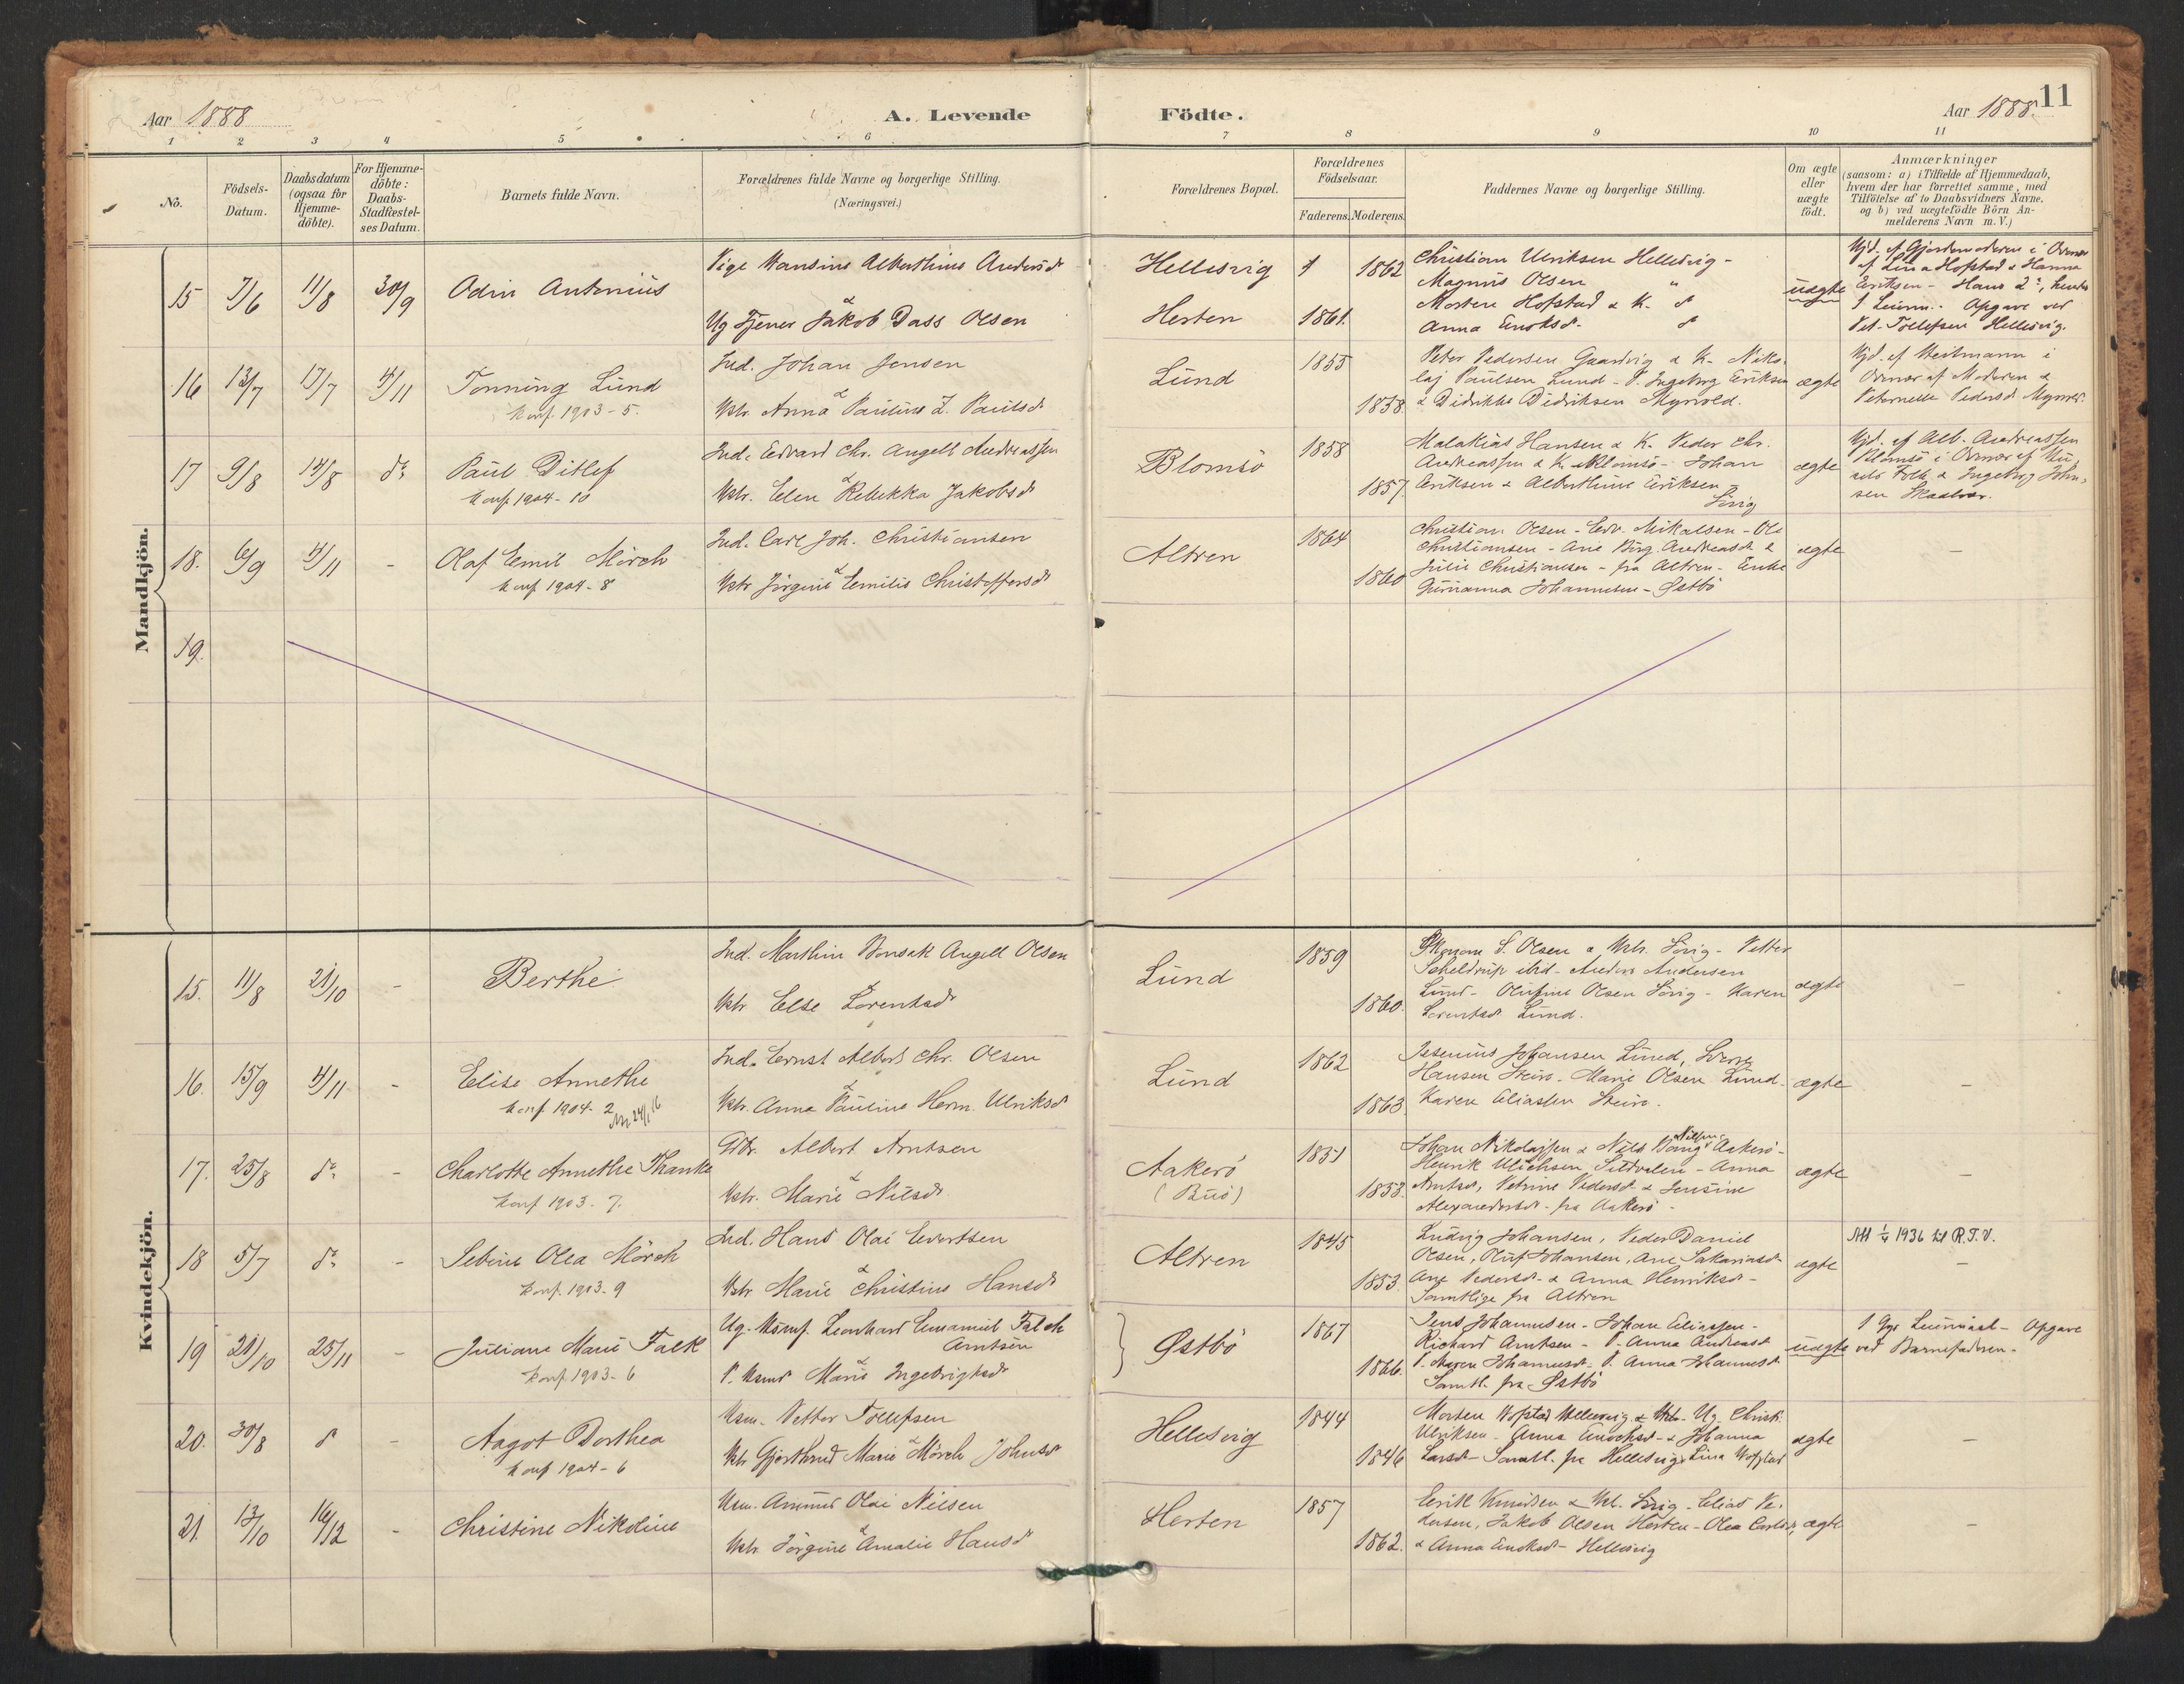 Aar 1888
A. Levende
Födte.
Aar 1888.
11
1 2 3 4 5 6 7 8 9 10 11
No.
Födsels-
Datum.
Daabsdatum
(ogsaa for
Hjemme-
döbte).
For Hjemme-
döbte:
Daabs-
Stadfæstel-
ses Datum.
Barnets fulde Navn.
Forældrenes fulde Navne og borgerlige Stilling.
(Næringsvei.)
Forældrenes Bopæl.
Forældrenes
Födselsaar.
Faderens. Moderens.
Faddernes Navne og borgerlige Stilling.
Om ægte
eller
uægte
födt.
Anmærkninger
(saasom: a) i Tilfælde af Hjemmedaab,
hvem der har forrettet samme, med
Tilföielse af to Daabsvidners Navne,
og b) ved uægtefödte Börn An-
melderens Navn m. V.)
Mandkjön.
15 7/6 11/8 30/9 Odin Antonius
Pige Hansine Alberthine Andersd
&
Ug Tjener Jakob Dass Olsen
Hellesvig
Herten
1862
1861.
Christian Ulriksen Hellesvig -
Magnus Olsen "
Morten Hofstad & K.
Anna
uægte
Hjd. af Gjordemoderen i
af Lina Hofstad & Hanna
Eriksen - Hans 2
1 Leierm. Opgave ved
Pet. Tollefsen Hellesvig.
16 13/7 17/7 4/11 Tonning Lund
Konf. 1903-5.
Ind. Johan Jensen
&
Hstr. Anna Pauline Z. Paulsd.
Lund
1855
1858.
Peter Pedersen Gaardvig & K. Niko-
laj Paulsen Lund - P. Ingeborg Eriksen
& Didrikke Didriksen Myrvold.
ægte
Hjd. af Heitmann i
af Moderen &
Peternelle Pedersd. Myrvold.
17 9/8 14/8 do Paul Ditlef
Konf. 1904-10
Ind. Edvard Chr. Angell Andreassen
&
Hstr. Elen Rebekka Jakobsd
Blomsö
1858
1857.
Malakias Hansen & K. Peder Chr.
Andreassen & K. Blomsö - Johan
Eriksen & Alberthine Eriksen
ægte
Hjd. af Alb. Andreassen
Blomsö i
Falk & Ingeborg John-
sen Skaalvær.
18. 6/9 4/11 - Olaf Emil Mörch
Konf 1904-8
Ind. Carl Joh. Christiansen
&
Hstr Jörgine Emilie Christoffersd
Altren
1864
1860
Christian Olsen - Edv. Mikalsen - Ole
Christiansen - Ane Birg. Andreasd. &
Julie Christiansen - fra Altren - Enke
Johannesen - Østbö
ægte
-
19.
Kvindekjön.
15. 11/8 21/10 - Berthe
Ind. Marthin Bonsak Angell Olsen
&
Hstr Else Lorentsd
Lund
1859
1860.
S. Olsen & Hstr. - Petter
ibid - Anders Andersen
Lund - Olufine Olsen - Karen
Lorentsd Lund.
ægte
-
16. 15/9 4/11 - Elise Annethe
Konf 1904-2
Ind. Ernst Albert Chr. Olsen
&
Hstr. Anna Pauline Herm. Ulriksd
Lund
1862
1863.
Johansen Lund,
Hansen - Marie Olsen Lund -
Karen Eliassen
ægte
-
17. 25/8 do - Charlotte Annethe Thanke
Konf 1903. 7.
Gbr. Albert Arntsen
&
Hstr. Marie Nilsd.
Aakerö
(Buö)
1851
1853.
Nilsen
Johan Nikolajsen & Nils Aakerö -
Henrik Ulrichsen - Anna
Arntsd, Petrine Pedersd & Jensine
Alexandersd. fra Aakerö -
ægte
-
18 5/7 do - Sebine Olea Mörch
Konf. 1903. 9
Ind. Hans Olai Evertsen
&
Hstr Marie Christine Hansd
Altren
1845
1853
Ludvig Johansen, Peder Daniel
Olsen, Oluf Johansen, Ane Sakariasd.
Ane Pedersd. & Anna Henriksd -
Samtlige fra Altren
ægte
Att 1/4 1936 til R.T.V.
-
19 21/10 25/11 - Juliane Marie Falk
Konf. 1903-6
Ug. Leonhard Emanuel Falch
Arntsen
&
P. Marie Ingebrigtsd
Østbö
1867
1866.
Jens Johannesen - Johan Eliassen -
Richard Arntsen - P. Anna Andreasd
P. Maren Johannesd. P. Anna Johannesd
Samtl. fra Østbö
uægte
1 Ggs Leiermaal - Opgave
ved Barnefaderen -
20. 30/8 do - Aagot Dorthea
Konf 1904-6
Husm. Petter Tollefsen
&
Hstr Gjertrud Marie Mörch Johnsd
Hellesvig
1844
1846
Morten Hofstad Hellesvig & Hstr. Ug. Christ.
Ulriksen - Anna Enochsd. & Johanna
Larsd - Samtl. fra Hellesvig. Lina Hofstad
ægte
-
21. 13/10 16/12 - Christine Nikoline
Husm. Olai Nilsen
&
Hstr. Jörgine Amalie Hansd
Herten
1857
1862.
Eerik Knudsen & Hst. - Elias Pe-
dersen, Jakob Olsen Herten - Olea Carlsd,
& Anna Enoksd - Hellesvig
ægte
-